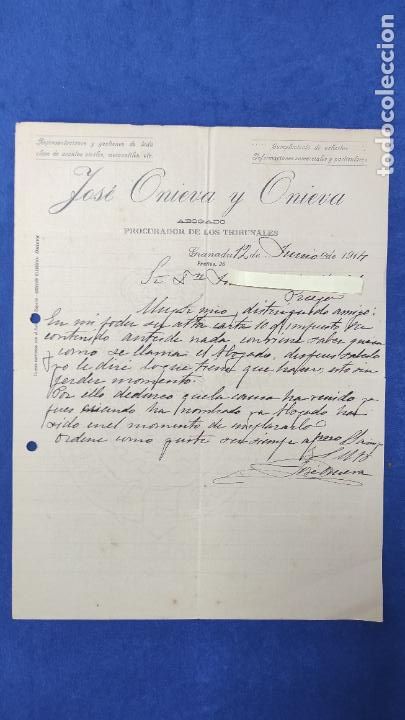 todocoleccion
Representaciones y gestiones de toda
clase de asuntos civiles, mercantiles, etc.
Cumplimiento de exhortos
Informaciones comerciales y particulares
José Onieva y Onieva
ABOGADO
PROCURADOR DE LOS TRIBUNALES
Granada 12 de Junio de 1914
Sr. Dn
Muy Sr mio y distinguido amigo:
En mi poder su atta carta 10 d impuesto de su
contenido antes de nada, conviene saber quien
y como se llama el Abogado, despues sabido
yo le diré lo que tiene que hacer, esto sin
perder momento.
Por ello deduzco que la causa ha venido ya
pues cuando ha nombrado ya Abogado ha
sido en el momento de emplazarlo
Ordene como guste su siempre affmo
José Onieva
todocoleccion.net